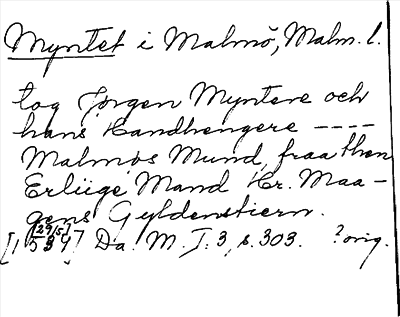 Myntet i Malmö, Malm. l.
tog Jörgen Myntere och
hans Handhengere ----
Malmös Mund, fraa then
Erlüge Mand Hr. Maa-
gens Gyldenstiern.
[29/5]
[1534] Da. M. I: 3, s. 303. ? orig.